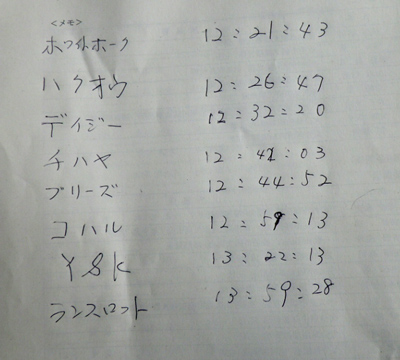 <メモ>
ホワイトホーク 12:21:43
ハクオウ 12:26:47
デイジー 12:32:20
チハヤ 12:42:03
ブリーズ 12:44:52
コハル 12:59:13
YSK 13:22:13
ランスロット 13:59:28